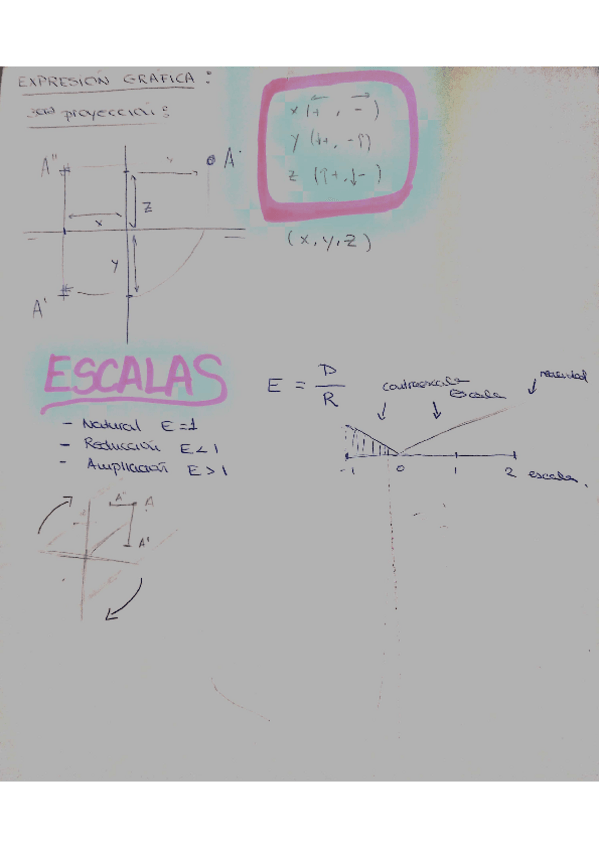 EXPRESION GRAFICA:
proyección:
A''
A'''
x
z
y
A'
x (+, -)
y (↓+, -↑)
z (↑+, ↓-)
(x, y, z)
ESCALAS
- Natural E=1
- Reducción E<1
- Ampliación E>1
E = D
R
contraescala
Escala
-1 0 1 2 escala.
A''
A
A'